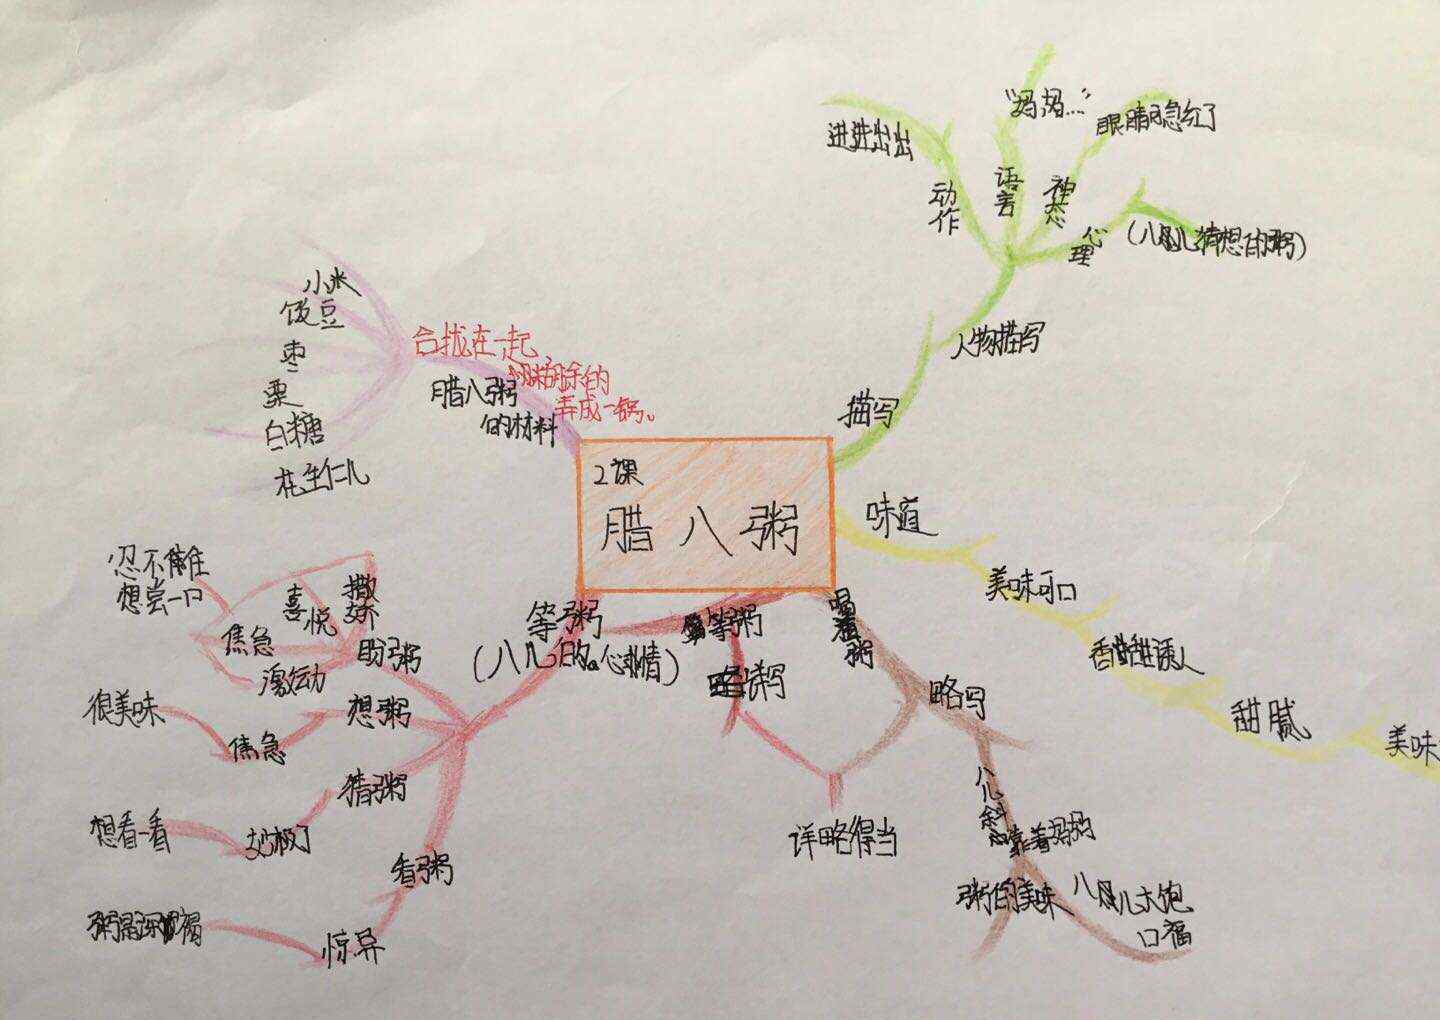 2课
腊八粥
合拢在一起，
糊糊涂涂的
弄成一锅。
腊八粥
的材料
小米
饭豆
枣
栗
白糖
花生仁儿
描写
人物描写
动作
进进出出
语言
“妈妈…”
神态
眼睛急红了
心理
(八儿猜想的粥)
味道
美味可口
香甜诱人
甜腻
美味
喝粥
略写
八儿斜靠着妈妈
粥的美味
八儿大饱
口福
等粥
详写
详略得当
等粥
(八儿的心情)
盼粥
撒娇
喜悦
焦急
激动
忍不住
想尝一口
想粥
焦急
很美味
猜粥
想看一看
看粥
惊异
粥是深褐